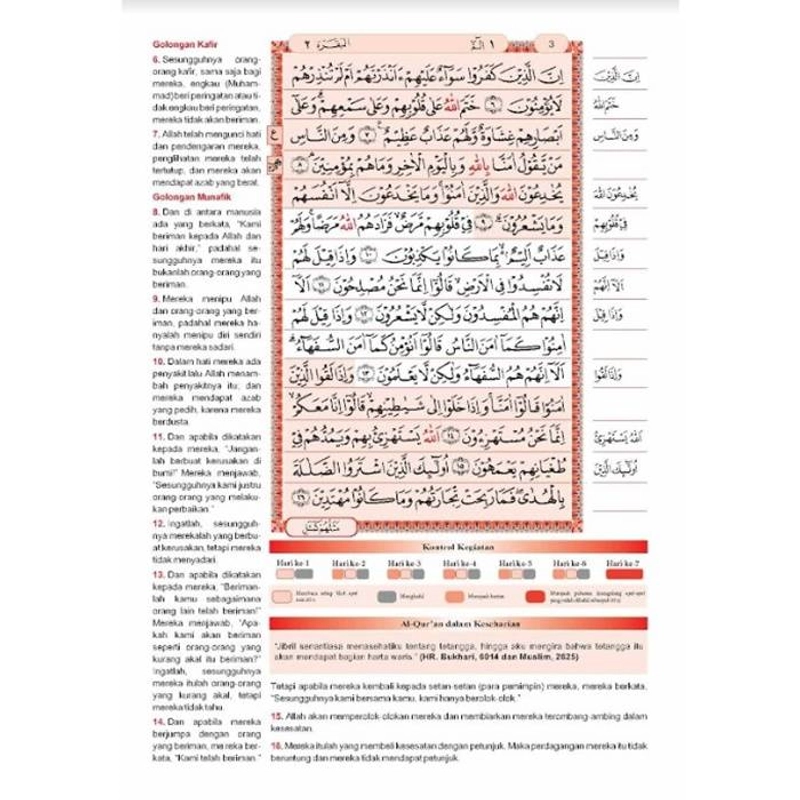 Golongan Kafir
6. Sesungguhnya orang-
orang kafir, sama saja bagi
mereka, engkau (Muham-
mad) beri peringatan atau ti-
dak engkau beri peringatan,
mereka tidak akan beriman.
7. Allah telah mengunci hati
dan pendengaran mereka,
penglihatan mereka telah
tertutup, dan mereka akan
mendapat azab yang berat.
Golongan Munafik
8. Dan di antara manusia
ada yang berkata, "Kami
beriman kepada Allah dan
hari akhir," padahal se-
sungguhnya mereka itu
bukanlah orang-orang yang
beriman.
9. Mereka menipu Allah
dan orang-orang yang ber-
iman, padahal mereka ha-
nyalah menipu diri sendiri
tanpa mereka sadari.
10. Dalam hati mereka ada
penyakit lalu Allah menam-
bah penyakitnya itu; dan
mereka mendapat azab
yang pedih, karena mereka
berdusta.
11. Dan apabila dikatakan
kepada mereka, "Jangan-
lah berbuat kerusakan di
bumi!" Mereka menjawab,
"Sesungguhnya kami justru
orang-orang yang melaku-
kan perbaikan."
12. Ingatlah, sesungguh-
nya merekalah yang berbu-
at kerusakan, tetapi mereka
tidak menyadari.
13. Dan apabila dikatakan
kepada mereka, "Beriman-
lah kamu sebagaimana
orang lain telah beriman!"
Mereka menjawab, "Apa-
kah kami akan beriman
seperti orang-orang yang
kurang akal itu beriman?"
Ingatlah, sesungguhnya
mereka itulah orang-orang
yang kurang akal, tetapi
mereka tidak tahu.
14. Dan apabila mereka
berjumpa dengan orang
yang beriman, mereka ber-
kata, "Kami telah beriman."
البقرة ٢
الم ١
3
اِنَّ الَّذِيْنَ كَفَرُوْا سَوَاۤءٌ عَلَيْهِمْ ءَاَنْذَرْتَهُمْ اَمْ لَمْ تُنْذِرْهُمْ
لَا يُؤْمِنُوْنَ ٦ خَتَمَ اللّٰهُ عَلٰى قُلُوْبِهِمْ وَعَلٰى سَمْعِهِمْ ۗ وَعَلٰٓى
اَبْصَارِهِمْ غِشَاوَةٌ وَّلَهُمْ عَذَابٌ عَظِيْمٌ ٧ وَمِنَ النَّاسِ
مَنْ يَّقُوْلُ اٰمَنَّا بِاللّٰهِ وَبِالْيَوْمِ الْاٰخِرِ وَمَا هُمْ بِمُؤْمِنِيْنَ ۘ ٨
يُخٰدِعُوْنَ اللّٰهَ وَالَّذِيْنَ اٰمَنُوْا ۚ وَمَا يَخْدَعُوْنَ اِلَّآ اَنْفُسَهُمْ
وَمَا يَشْعُرُوْنَ ۗ ٩ فِيْ قُلُوْبِهِمْ مَّرَضٌۙ فَزَادَهُمُ اللّٰهُ مَرَضًاۚ وَلَهُمْ
عَذَابٌ اَلِيْمٌ ۢ ەۙ بِمَا كَانُوْا يَكْذِبُوْنَ ١٠ وَاِذَا قِيْلَ لَهُمْ
لَا تُفْسِدُوْا فِى الْاَرْضِۙ قَالُوْٓا اِنَّمَا نَحْنُ مُصْلِحُوْنَ ١١ اَلَآ
اِنَّهُمْ هُمُ الْمُفْسِدُوْنَ وَلٰكِنْ لَّا يَشْعُرُوْنَ ١٢ وَاِذَا قِيْلَ لَهُمْ
اٰمِنُوْا كَمَآ اٰمَنَ النَّاسُ قَالُوْٓا اَنُؤْمِنُ كَمَآ اٰمَنَ السُّفَهَاۤءُ ۗ
اَلَآ اِنَّهُمْ هُمُ السُّفَهَاۤءُ وَلٰكِنْ لَّا يَعْلَمُوْنَ ١٣ وَاِذَا لَقُوا الَّذِيْنَ
اٰمَنُوْا قَالُوْٓا اٰمَنَّا ۚ وَاِذَا خَلَوْا اِلٰى شَيٰطِيْنِهِمْ ۙ قَالُوْٓا اِنَّا مَعَكُمْ ۙ
اِنَّمَا نَحْنُ مُسْتَهْزِءُوْنَ ١٤ اَللّٰهُ يَسْتَهْزِئُ بِهِمْ وَيَمُدُّهُمْ فِيْ
طُغْيَانِهِمْ يَعْمَهُوْنَ ١٥ اُولٰۤىِٕكَ الَّذِيْنَ اشْتَرَوُا الضَّلٰلَةَ
بِالْهُدٰىۖ فَمَا رَبِحَتْ تِّجَارَتُهُمْ وَمَا كَانُوْا مُهْتَدِيْنَ ١٦
مَثَلُهُمْ كَمَثَلِ
ع
اِنَّ الَّذِيْنَ
خَتَمَ اللّٰهُ
وَمِنَ النَّاسِ
يُخٰدِعُوْنَ اللّٰهَ
فِيْ قُلُوْبِهِمْ
وَاِذَا قِيْلَ
اَلَآ اِنَّهُمْ
وَاِذَا قِيْلَ
وَاِذَا لَقُوا
اَللّٰهُ يَسْتَهْزِئُ
اُولٰۤىِٕكَ الَّذِيْنَ
Kontrol Kegiatan
Hari ke-1 Hari ke-2 Hari ke-3 Hari ke-4 Hari ke-5 Hari ke-6 Hari ke-7
Menghafal
Al-Qur'an dalam Keseharian
"Jibril senantiasa menasehatiku tentang tetangga, hingga aku mengira bahwa tetangga itu
akan mendapat bagian harta waris." (HR. Bukhari, 6014 dan Muslim, 2625)
Tetapi apabila mereka kembali kepada setan-setan (para pemimpin) mereka, mereka berkata,
"Sesungguhnya kami bersama kamu, kami hanya berolok-olok."
15. Allah akan memperolok-olokan mereka dan membiarkan mereka terombang-ambing dalam
kesesatan.
16. Mereka itulah yang membeli kesesatan dengan petunjuk. Maka perdagangan mereka itu tidak
beruntung dan mereka tidak mendapat petunjuk.